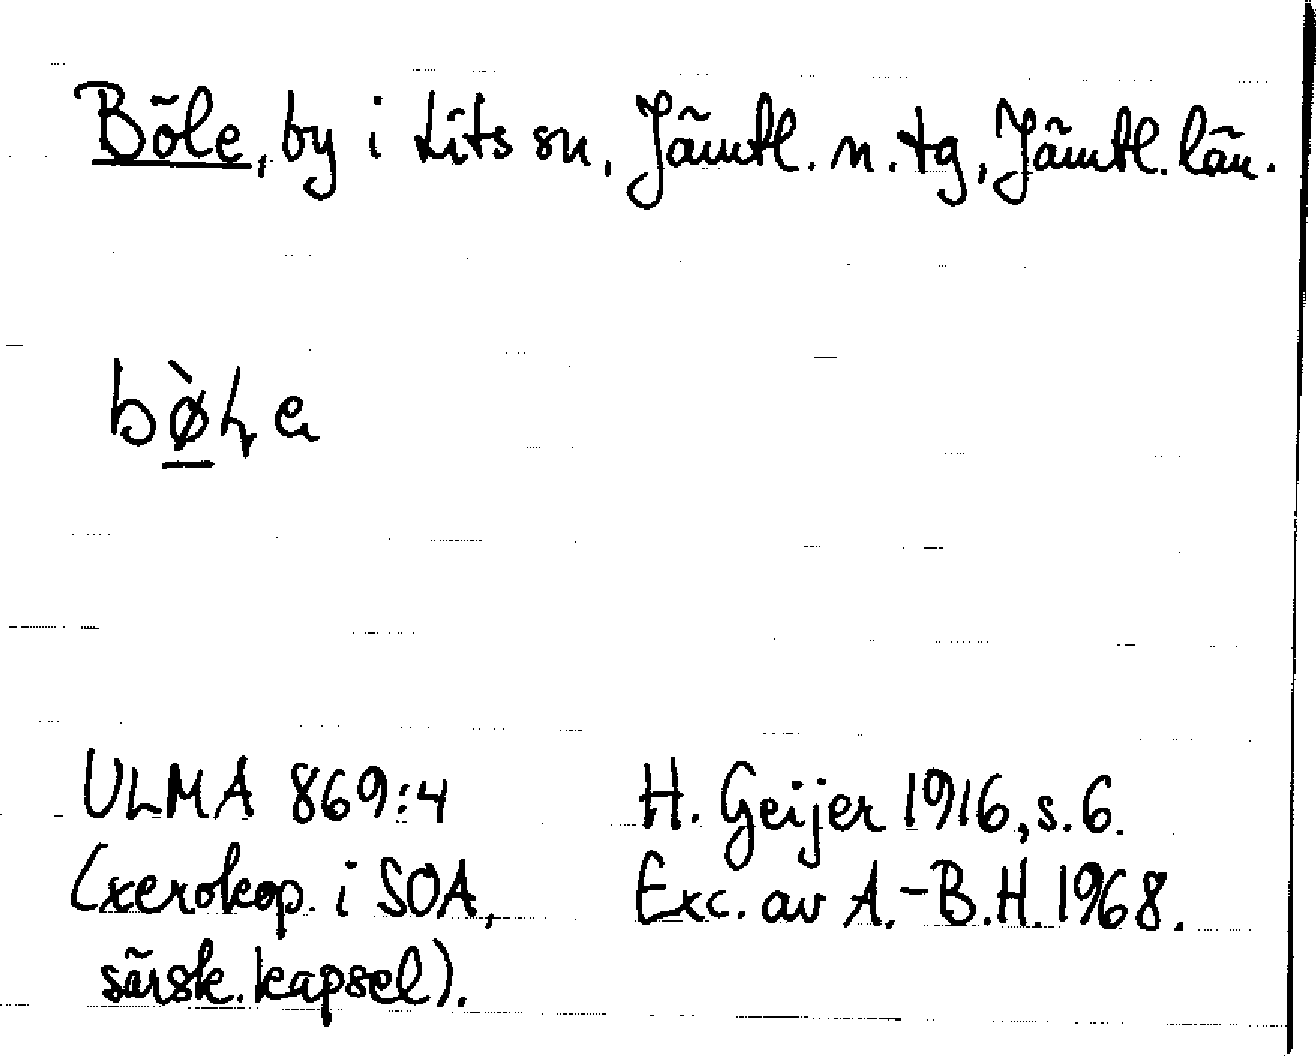 Böle, by i Lits sn, Jämtl. n. tg, Jämtl. län.
bø̠̀ꞎe
ULMA 869:4
(xerokop. i SOA,
särsk. kapsel).
H. Geijer 1916, s. 6.
Exc. av A.-B.H. 1968.